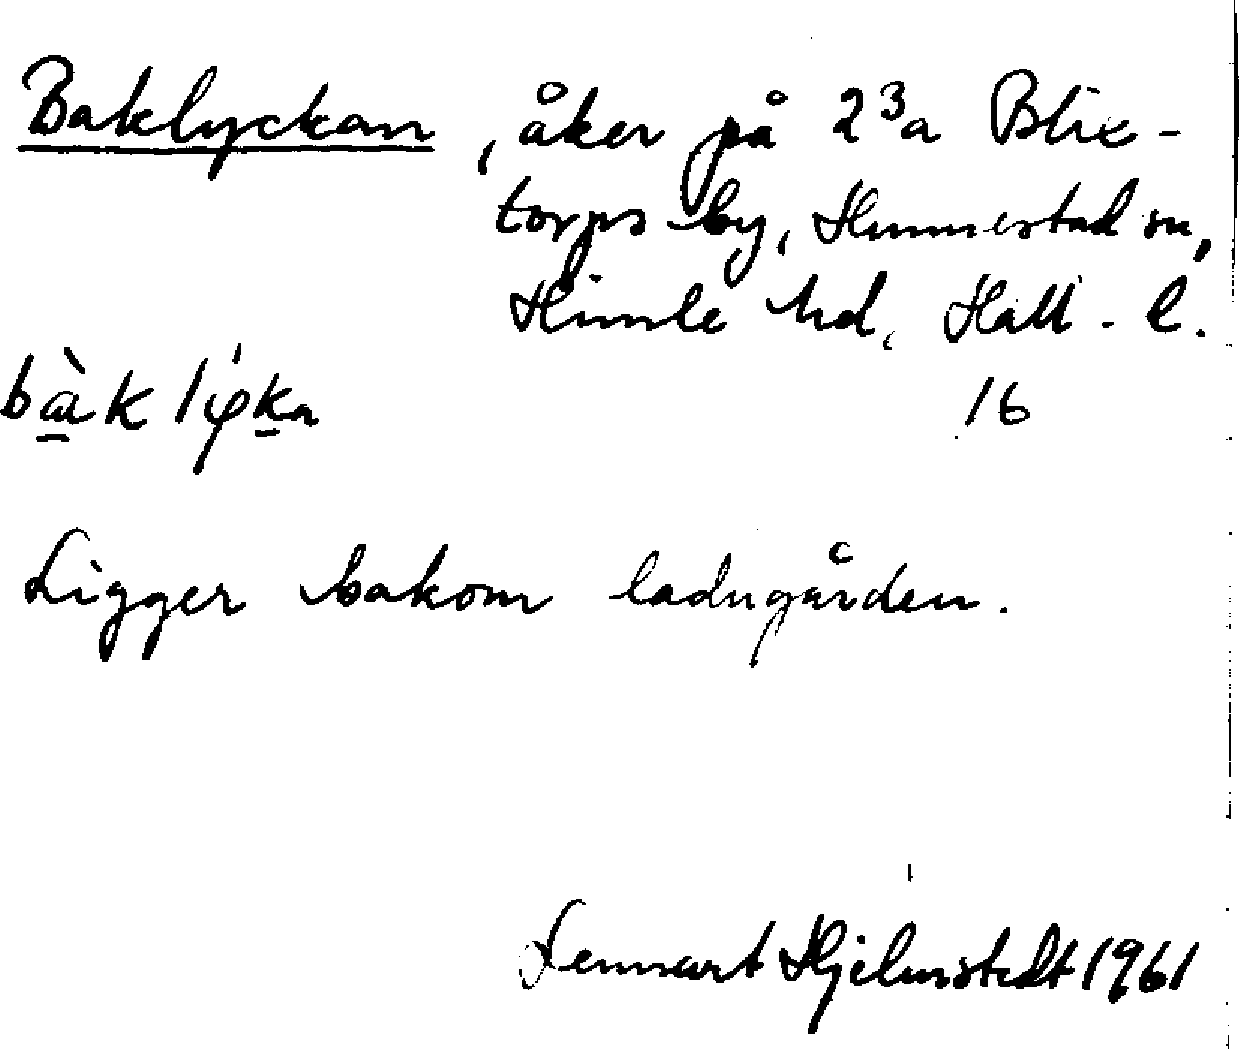 Baklyckan, åker på 2³a Blix-
torps by, Hunnestad sn,
Himle hd, Hall. l.
16
Ligger bakom ladugården.
Lennart Hjelmstedt 1961